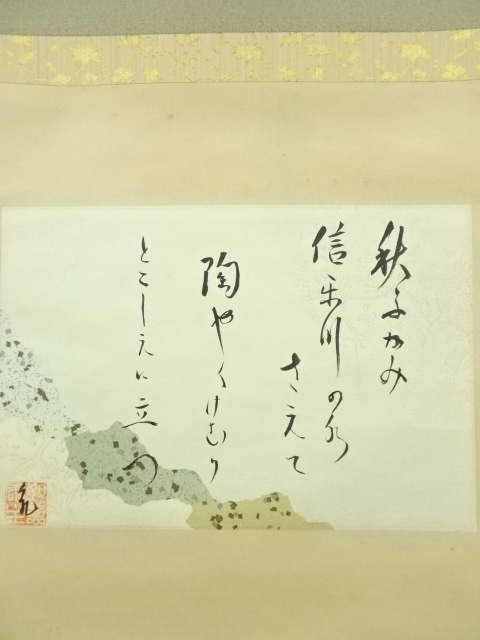 秋ふかみ
信楽川の水
さえて
陶やくけむり
とこしえに立つ